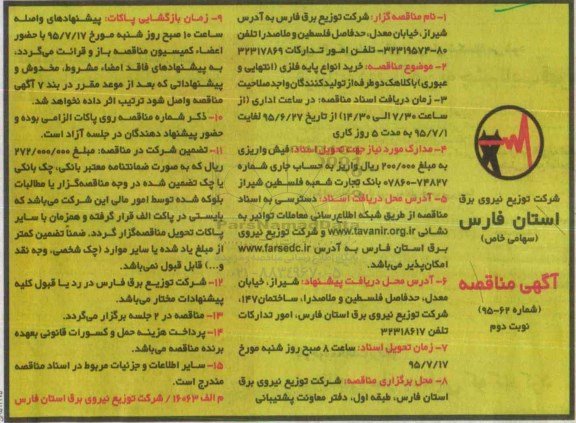 ۱- نام مناقصه گزار: شرکت توزیع برق فارس به آدرس
شیراز، خیابان معدل، حدفاصل فلسطین و ملاصدرا تلفن
۸۰-۳۲۳۱۹۵۷۴- تلفن امور تدارکات ۳۲۳۱۷۸۶۹
۲- موضوع مناقصه: خرید انواع پایه فلزی (انتهایی و
عبوری) با کلاهک دوطرفه از تولیدکنندگان واجد صلاحیت
۳- زمان دریافت اسناد مناقصه: در ساعت اداری (از
ساعت ۷/۳۰ الی ۱۴/۳۰) از تاریخ ۹۵/۶/۲۷ لغایت
۹۵/۷/۱ به مدت ۵ روز کاری
۴- مدارک مورد نیاز جهت تحویل اسناد: فیش واریزی
به مبلغ ۲۰۰/۰۰۰ ریال واریز به حساب جاری شماره
۷۴۸۲۷-۰۷۸۶۰ بانک تجارت شعبه فلسطین شیراز
۵- آدرس محل دریافت اسناد: دسترسی به اسناد
مناقصه از طریق شبکه اطلاع‌رسانی معاملات توانیر به
نشانی www.tavanir.org.ir و شرکت توزیع نیروی
برق استان فارس به آدرس www.farsedc.ir
امکان‌پذیر می‌باشد.
۶- آدرس محل دریافت پیشنهاد: شیراز، خیابان
معدل، حدفاصل فلسطین و ملاصدرا، ساختمان ۱۴۷،
شرکت توزیع نیروی برق استان فارس، امور تدارکات
تلفن ۳۲۳۱۸۶۱۷
۷- زمان تحویل اسناد: ساعت ۸ صبح روز شنبه مورخ
۹۵/۷/۱۷
۸- محل برگزاری مناقصه: شرکت توزیع نیروی برق
استان فارس، طبقه اول، دفتر معاونت پشتیبانی
۹- زمان بازگشایی پاکات: پیشنهادهای واصله
ساعت ۱۰ صبح روز شنبه مورخ ۹۵/۷/۱۷ با حضور
اعضاء کمیسیون مناقصه باز و قرائت می‌گردد،
به پیشنهادهای فاقد امضاء مشروط، مخدوش و
پیشنهاداتی که بعد از موعد مقرر در بند ۷ آگهی
مناقصه واصل شود ترتیب اثر داده نخواهد شد.
۱۰- ذکر شماره مناقصه روی پاکات الزامی بوده و
حضور پیشنهاد دهندگان در جلسه آزاد است.
۱۱- تضمین شرکت در مناقصه: مبلغ ۲۷۴/۰۰۰/۰۰۰
ریال که به صورت ضمانتنامه معتبر بانکی، چک بانکی
یا چک تضمین شده در وجه مناقصه‌گزار یا مطالبات
بلوکه شده توسط امور مالی این شرکت می‌باشد که
بایستی در پاکت الف قرار گرفته و همزمان با سایر
پاکات تحویل مناقصه‌گزار گردد. ضمناً تضمین کمتر
از مبلغ یاد شده یا سایر موارد (چک شخصی، وجه نقد
و...) قابل قبول نمی‌باشد.
۱۲- شرکت توزیع برق فارس در رد یا قبول کلیه
پیشنهادات مختار می‌باشد.
۱۳- مناقصه در ۲ جلسه برگزار می‌گردد.
۱۴- پرداخت هزینه حمل و کسورات قانونی بعهده
برنده مناقصه می‌باشد.
۱۵- سایر اطلاعات و جزئیات مربوط در اسناد مناقصه
مندرج است.
م الف ۱۶۰۶۳ / شرکت توزیع نیروی برق استان فارس
شرکت توزیع نیروی برق
استان فارس
(سهامی خاص)
آگهی مناقصه
(شماره ۶۲-۹۵)
نوبت دوم